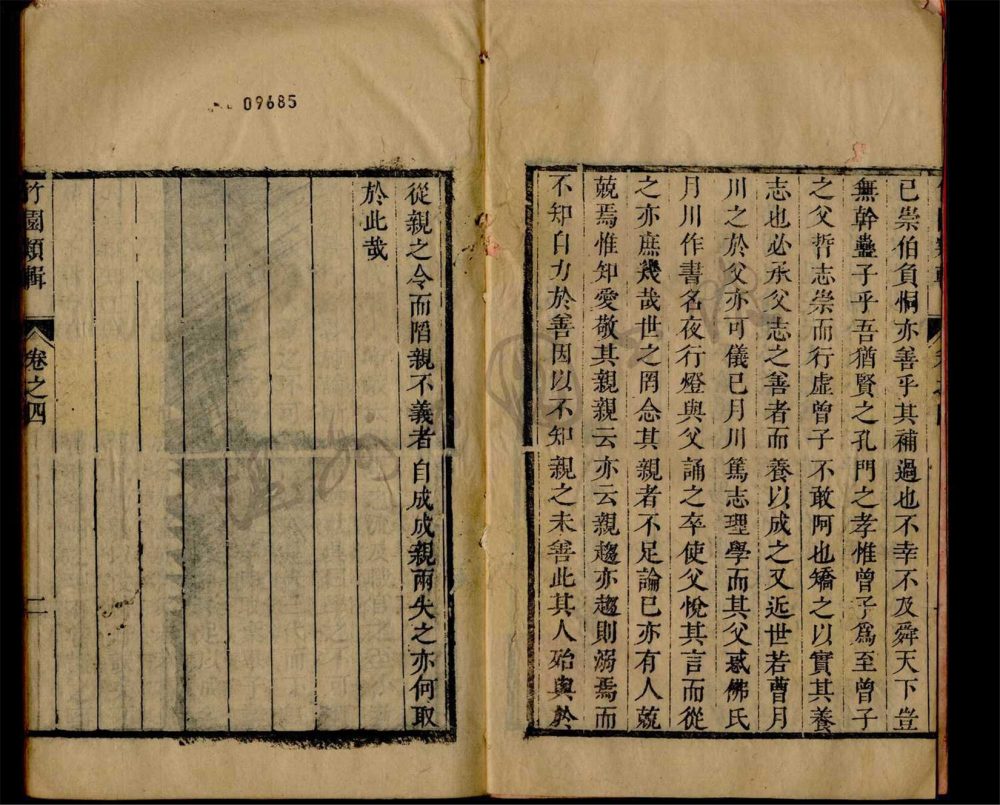 已崇伯負恫亦善乎其補過也不幸不及舜天下豈
無幹蠱子乎吾猶賢之孔門之孝惟曾子爲至曾子
之父哲志崇而行虛曾子不敢阿也矯之以實其養
志也必承父志之善者而養以成之又近世若曹月
川之於父亦可儀已月川篤志理學而其父惑佛氏
月川作書名夜行燈與父誦之卒使父悅其言而從
之亦庶幾哉世之罔念其親者不足論已亦有人兢
兢焉惟知愛敬其親親云亦云親趨亦趨則溺焉而
不知自力於善因以不知親之未善此其人殆與於
09685
從親之令而陷親不義者自成成親兩失之亦何取
於此哉
竹園類輯
卷之四
二